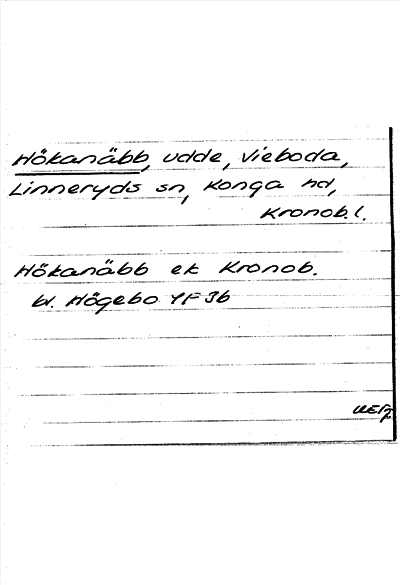 Hökanäbb, udde, Vieboda,
Linneryds sn, Konga hd,
Kronob. l.
Hökanäbb ek Kronob.
bl. Högebo 4F 3b